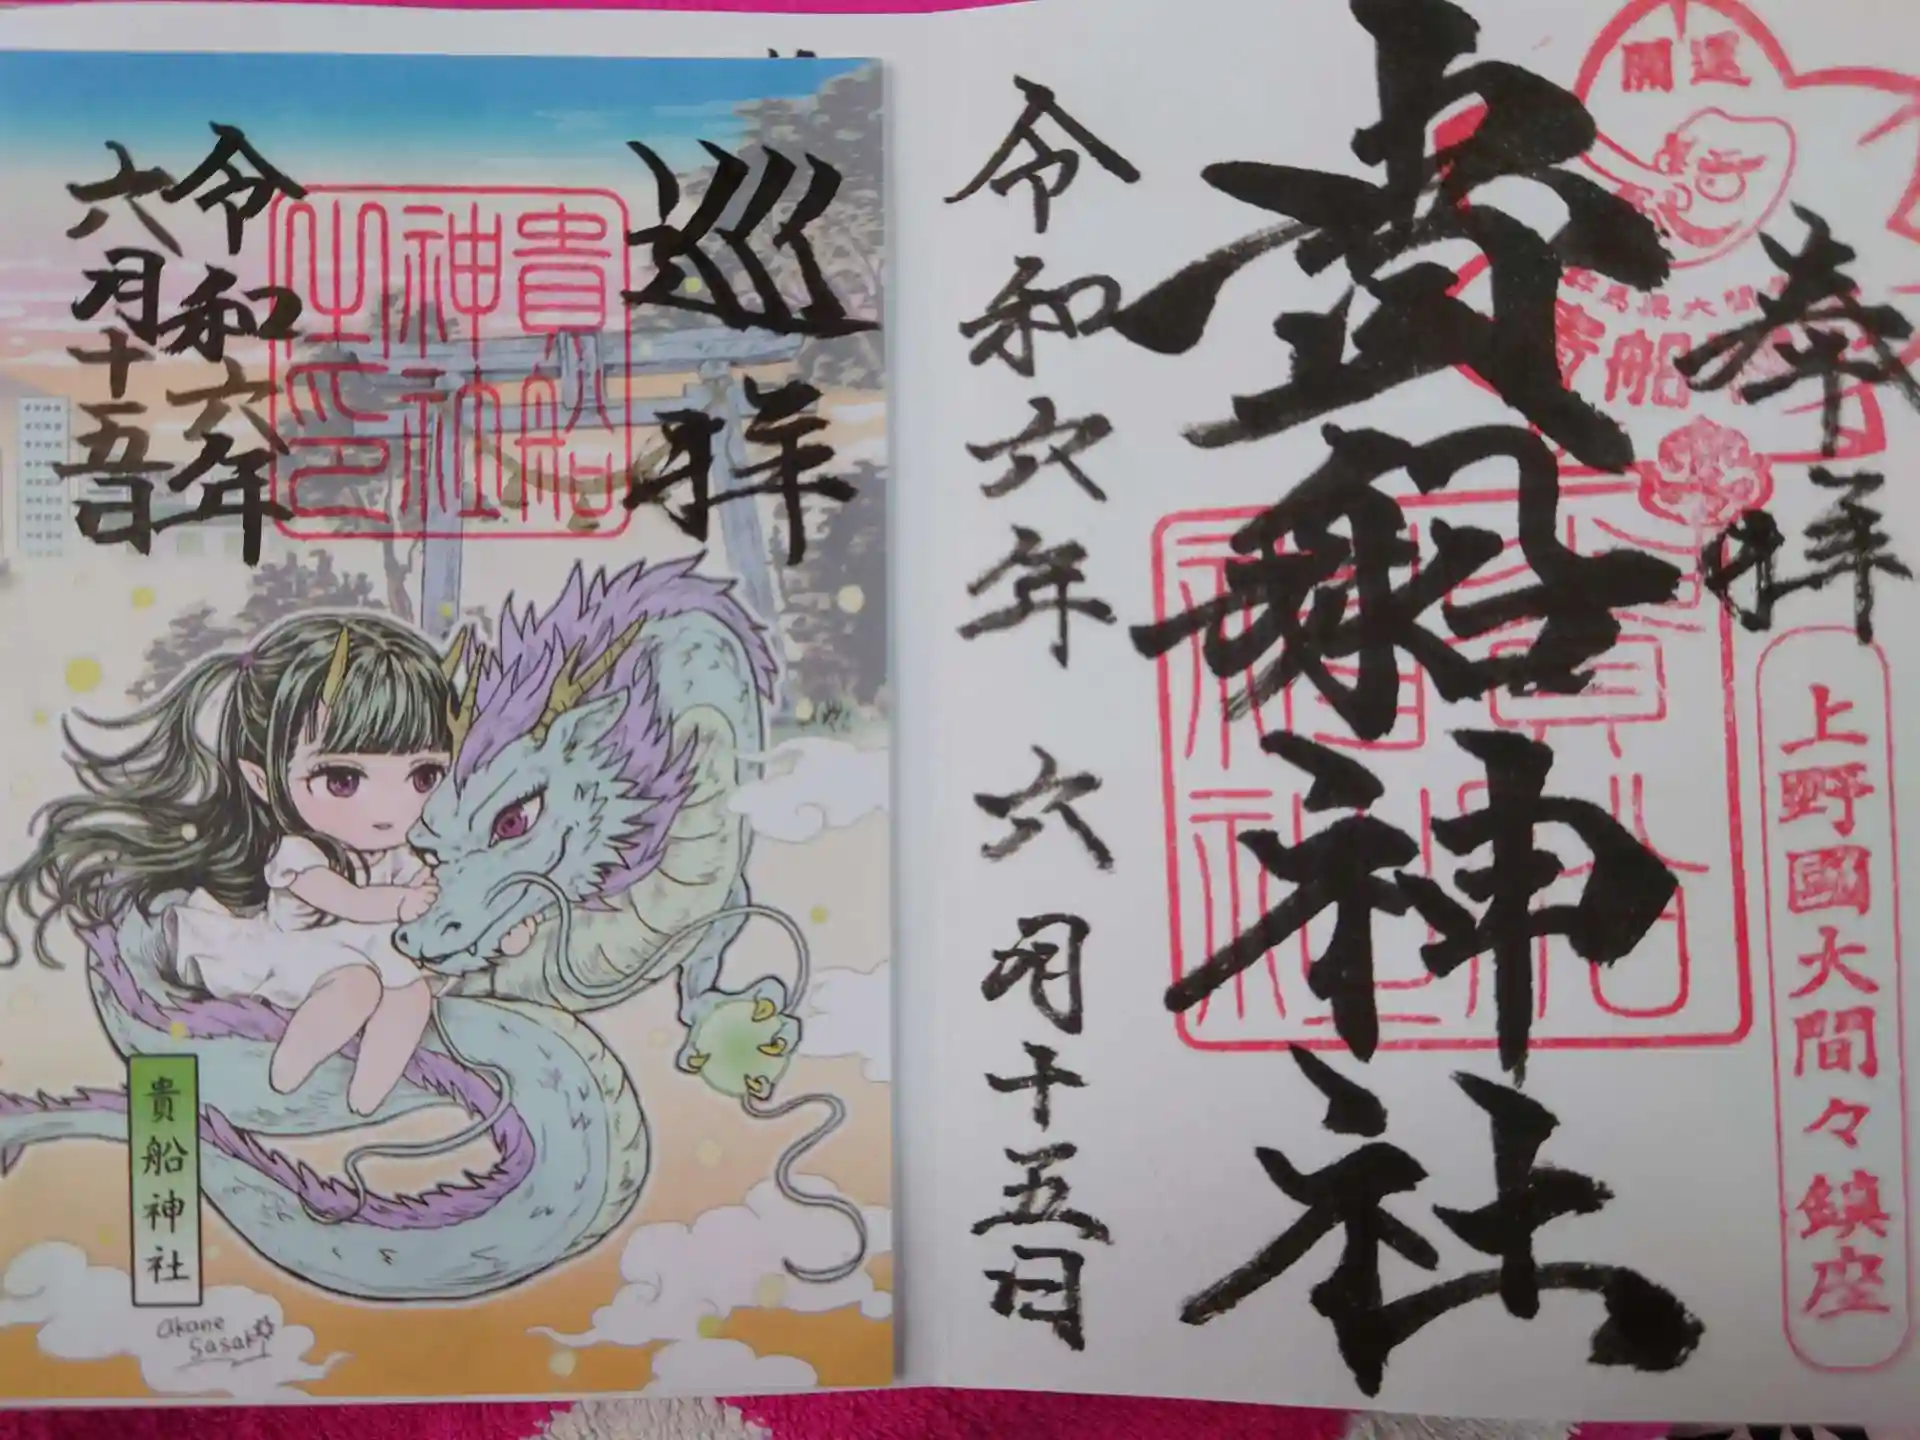 開運
奉拝
上野國大間々鎮座
貴船神社
令和六年 六月十五日
巡拝
貴船
神社
之印
令和六年
六月十五日
貴船神社
akane
sasaki